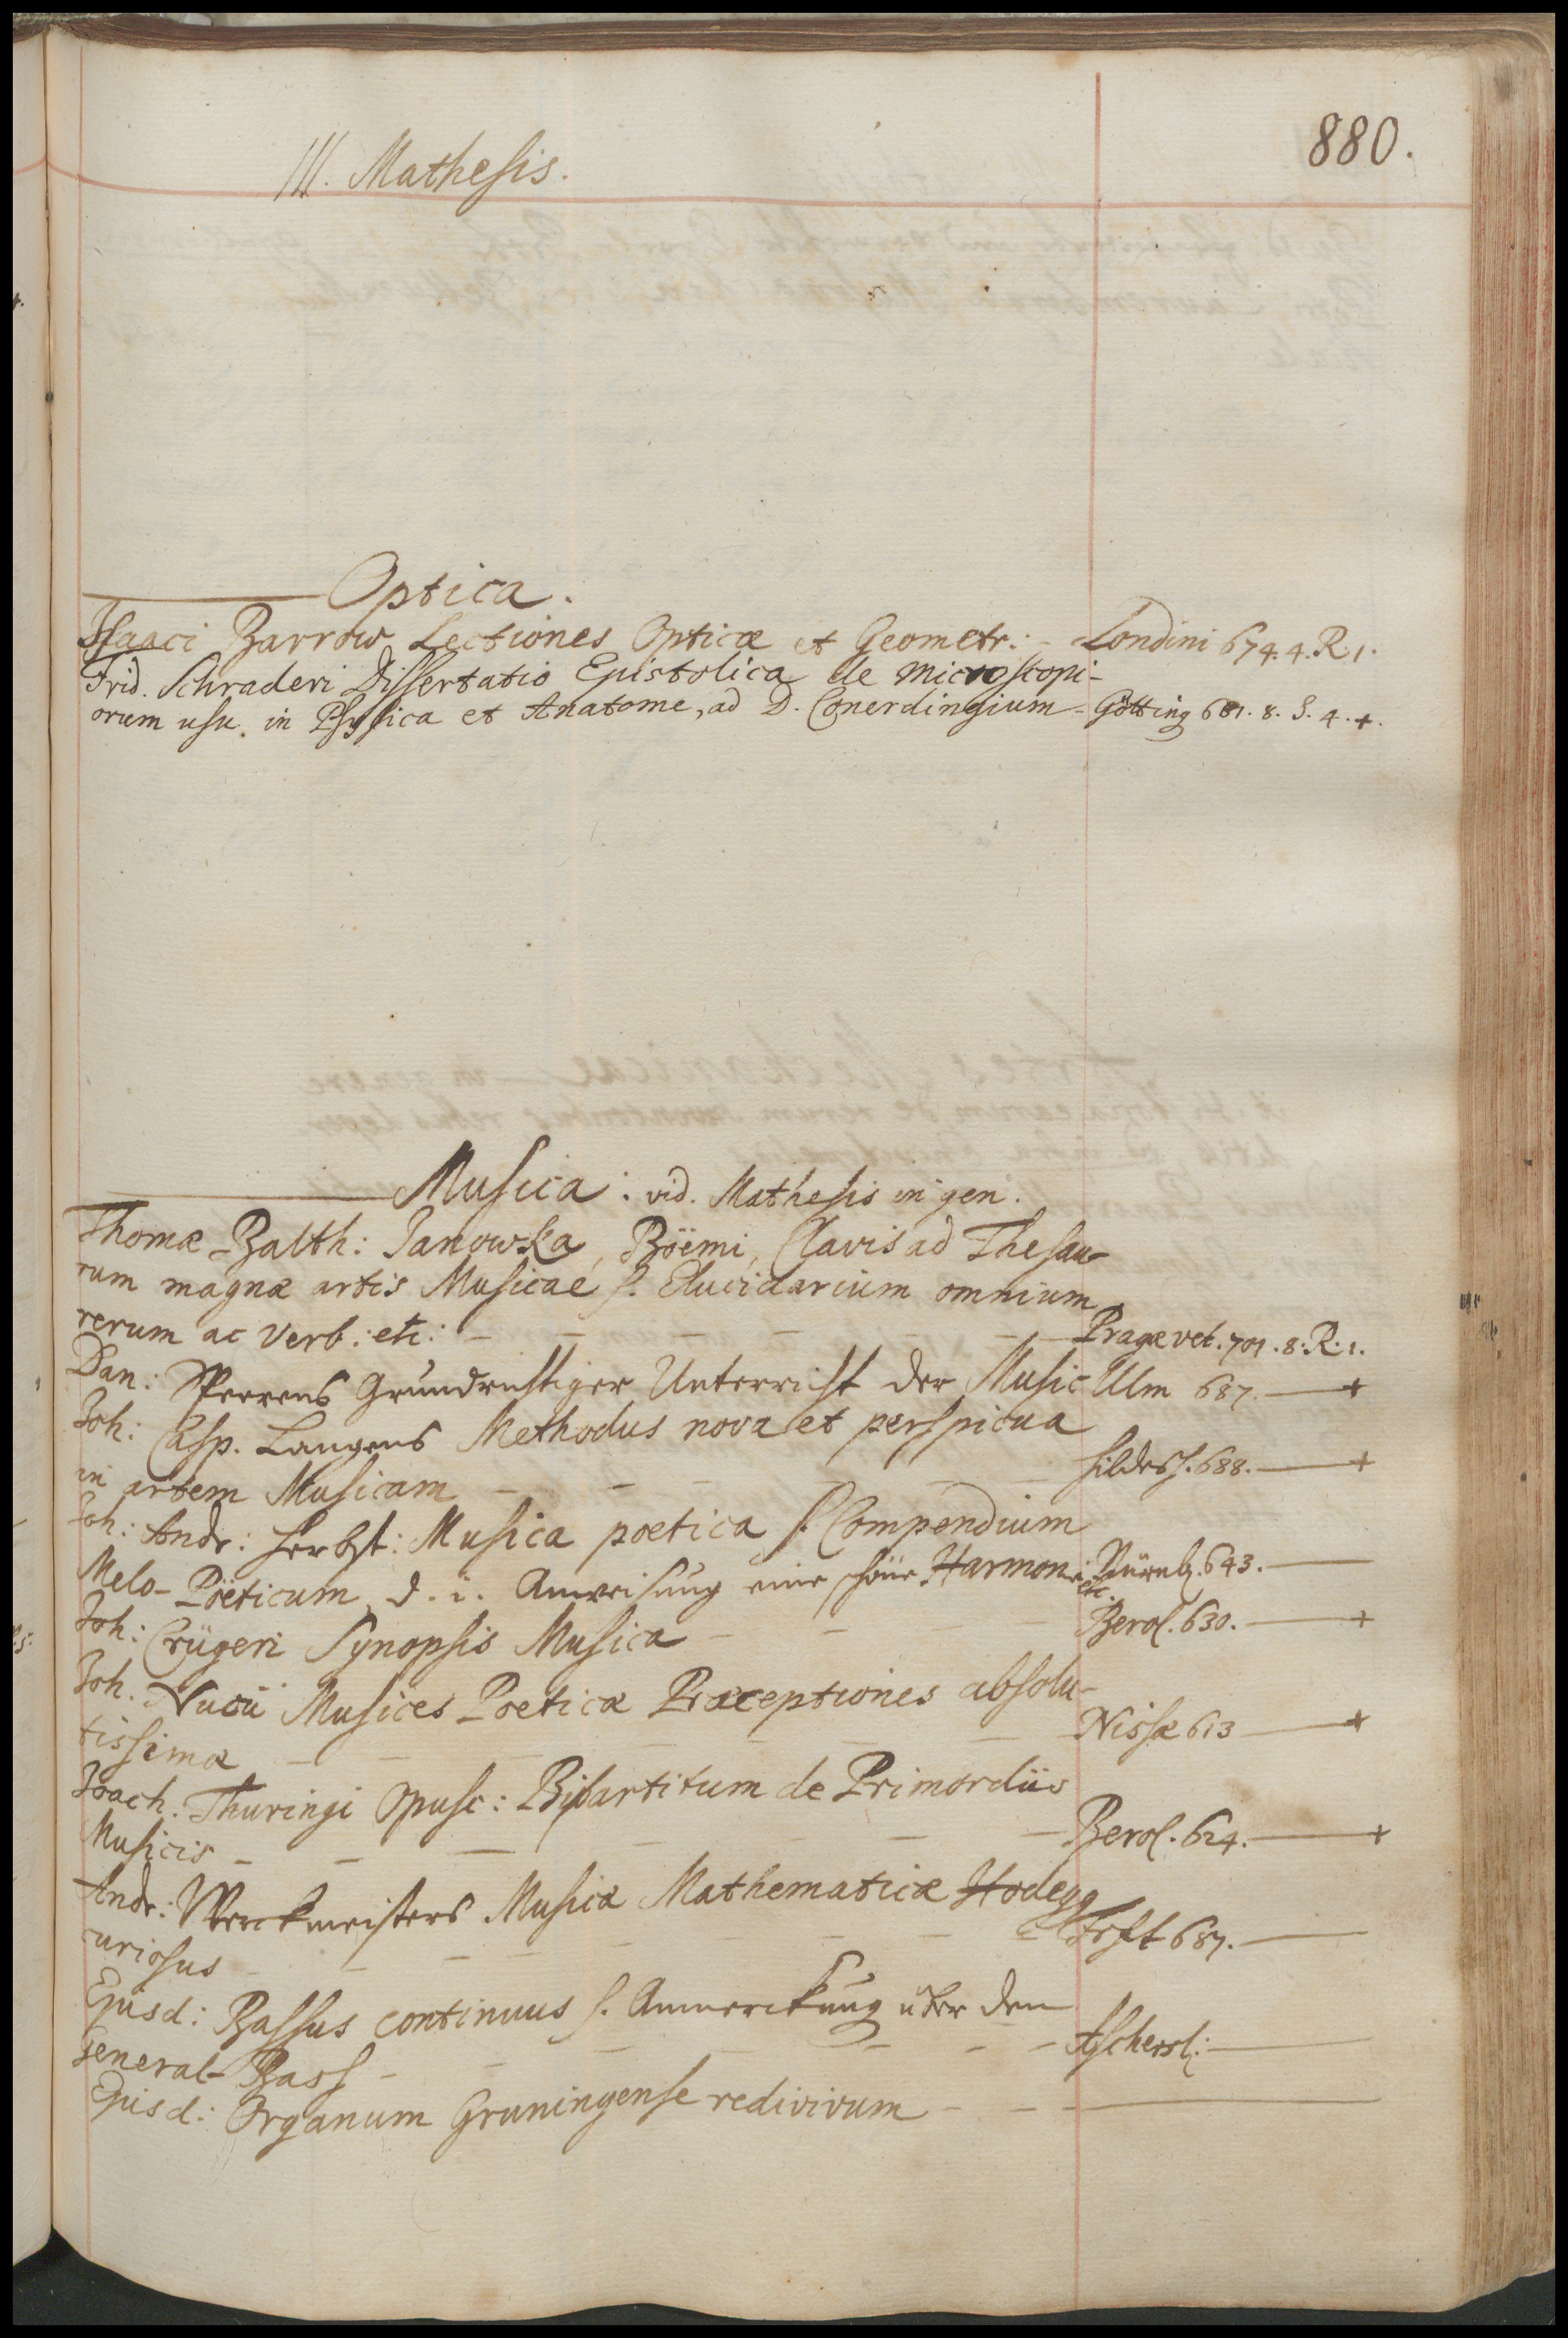 880.
III. Mathesis.
Optica.
Isaaci Barrow Lectiones Opticæ et Geometr: - Londini 674. 4. R. 1.
Frid. Schraderi Dissertatio Epistolica de microscopi-
orum usu in Physica et Anatome, ad D. Conerdingium - Götting 681. 8. S. 4. +.
Musica: vid. Mathesis in gen.
Thomæ Balth: Janowka, Böemi, Clavis ad Thesau-
rum magnæ artis Musicae s. Elucidarium omnium
rerum ac Verb: etc: - - - - - - - Pragæ vet. 701. 8. R. 1.
Dan: Sperrens Grundrichtiger Unterricht der Music Ulm 687. — +
Joh: Casp. Langens Methodus nova et perspicua
in artem Musicam - - - - - Hildesh. 688. — +
Joh: Andr: Herbst: Musica poetica s. Compendium
Melo-Pöeticum, d. i. Anweisung eine schöne Harmoni etc. Nürnb. 643. —
Joh: Crügeri Synopsis Musica - - - - Berol. 630. — +
Joh. Nucii Musices Poeticæ Præceptiones absolu-
tissimæ - - - - - - - Nissæ 613 — +
Joach. Thuringi Opusc: Bipartitum de Primordiis
Musicis - - - - - - Berol. 624. — +
Andr: Werckmeisters Musicæ Mathematicæ Hodeg9
curiosus - - - - - - - Frft 687. —
Ejusd: Bassus continuus s. Anmerckung über den
General-Bass - - - - - - - Aschersl: —
Ejusd: Organum Gruningense redivivum - - —